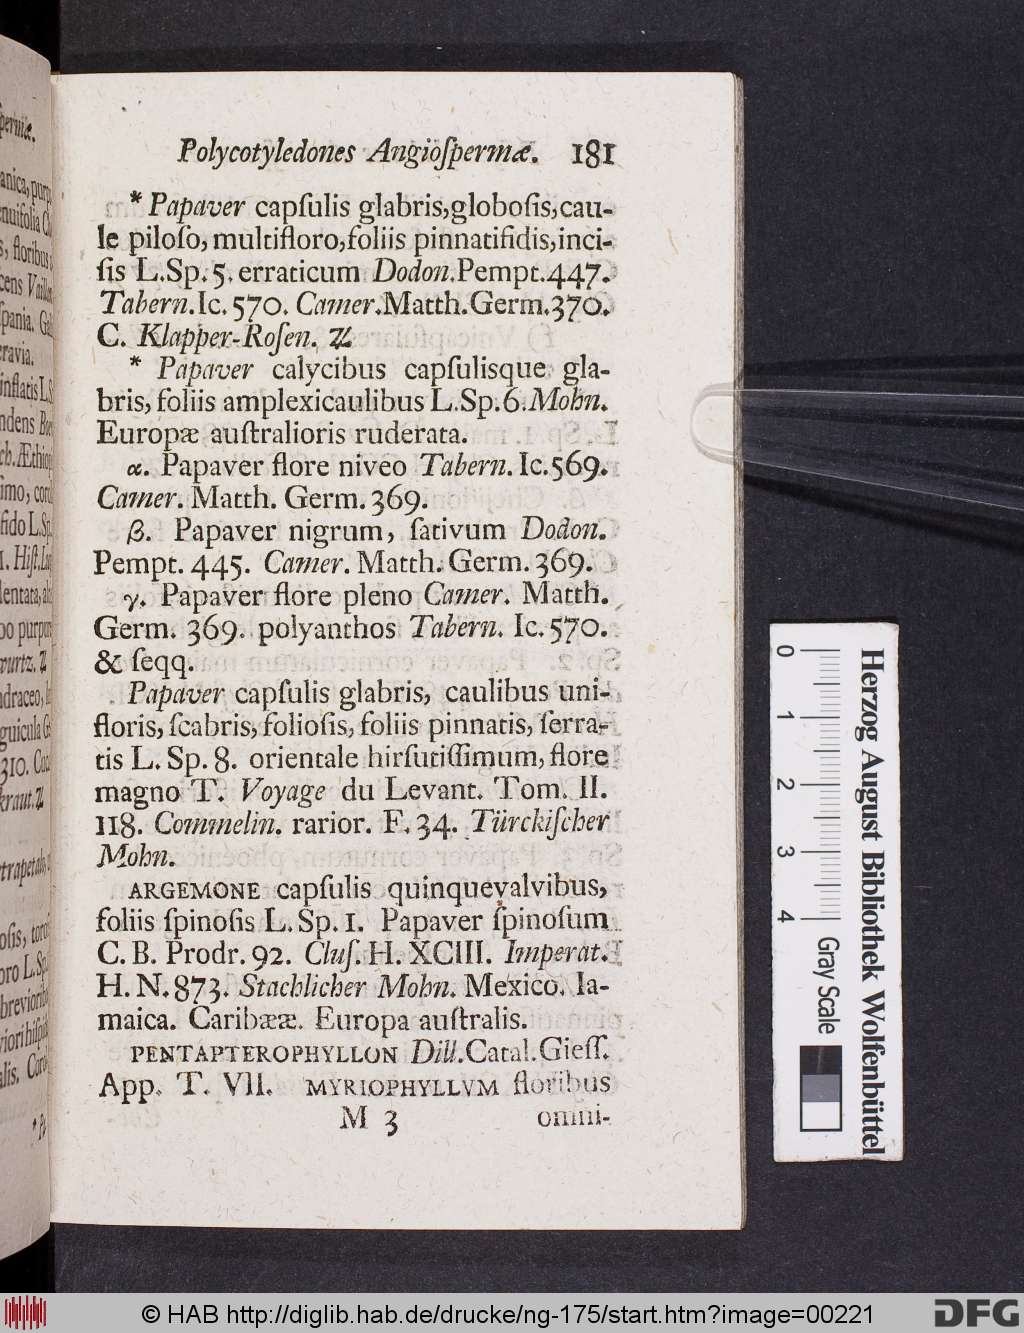 Polycotyledones Angioſpermæ. 181
* Papaver capſulis glabris,globoſis,cau-
le piloſo, multifloro,foliis pinnatifidis,inci-
ſis L.Sp.5. erraticum Dodon.Pempt.447.
Tabern.Ic.570. Camer.Matth.Germ.370.
C. Klapper-Roſen. ♃
* Papaver calycibus capſulisque gla-
bris, foliis amplexicaulibus L.Sp.6.Mohn.
Europæ auſtralioris ruderata.
α. Papaver flore niveo Tabern. Ic.569.
Camer. Matth. Germ. 369.
β. Papaver nigrum, ſativum Dodon.
Pempt. 445. Camer. Matth. Germ. 369.
γ. Papaver flore pleno Camer. Matth.
Germ. 369. polyanthos Tabern. Ic. 570.
& ſeqq.
Papaver capſulis glabris, caulibus uni-
floris, ſcabris, folioſis, foliis pinnatis, ſerra-
tis L. Sp. 8. orientale hirſutiſſimum, flore
magno T. Voyage du Levant. Tom. II.
118. Commelin. rarior. F. 34. Türckiſcher
Mohn.
ARGEMONE capſulis quinquevalvibus,
foliis ſpinoſis L. Sp. 1. Papaver ſpinoſum
C. B. Prodr. 92. Cluſ. H. XCIII. Imperat.
H. N. 873. Stachlicher Mohn. Mexico. Ia-
maica. Caribææ. Europa auſtralis.
PENTAPTEROPHYLLON Dill.Catal.Gieſſ.
App. T. VII. MYRIOPHYLLVM floribus
M 3 omni-
0 1 2 3 4
Gray Scale
Herzog August Bibliothek Wolfenbüttel
© HAB http://diglib.hab.de/drucke/ng-175/start.htm?image=00221
DFG